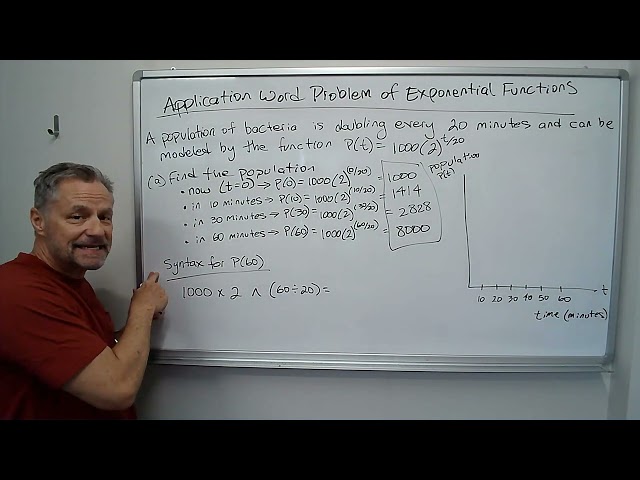 Application Word Problem of Exponential Functions
A population of bacteria is doubling every 20 minutes and can be
modeled by the function P(t) = 1000(2)^t/20
(a) Find the population
• now (t=0) → P(0) = 1000(2)^(0/20) = 1000
• in 10 minutes → P(10) = 1000(2)^(10/20) = 1414
• in 30 minutes → P(30) = 1000(2)^(30/20) = 2828
• in 60 minutes → P(60) = 1000(2)^(60/20) = 8000
Syntax for P(60)
1000 x 2 ∧ (60÷20) =
population
P(t)
t
10 20 30 40 50 60
time (minutes)